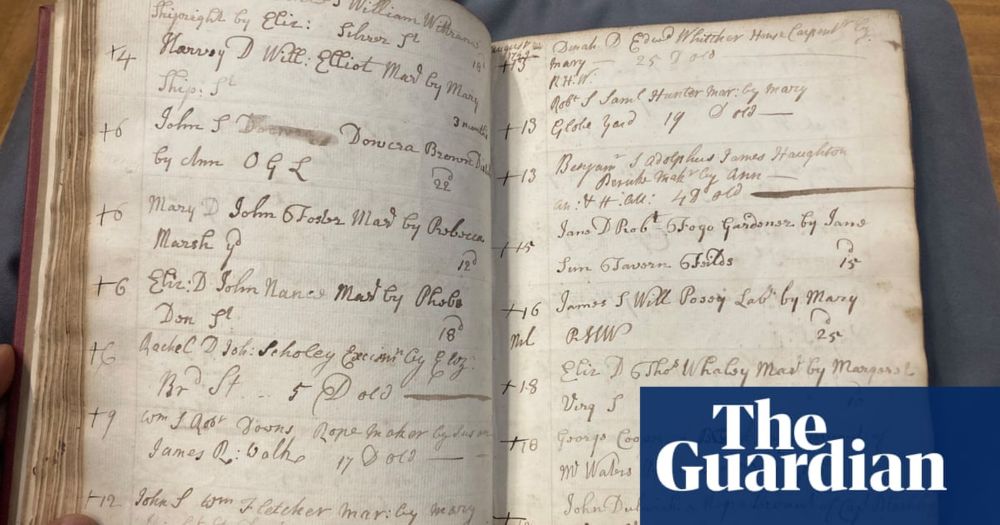 William
Shipright by Eliz: Silver St
18d
+4 Harvey D Will: Elliot Mard by Mary
Ship: St
3 months
+6 John S Dowcra Brown
by Ann O G L
22d
+6 Mary D John Foster Mard by Rebecca
Marsh yd
12d
+6 Eliz: D John Nance Mard by Phebe
Den St
18d
+6 Rachel D Joh: Scholey by Eliz:
Brd. St ... 5 D old
+9 Wm S Robt Downs Rope maker by Susan
James R: Walk 17 D old
+12 John S Wm Fletcher mar: by mary
+13 Dinah D Edwd Whitcher House Carpentr by
Mary — 25 D old —
R.H.W.
+13 Robt S Saml Hunter mar: by mary
Globe Yard 19 D old —
+13 Benjamn S Adolphus James Haughton
makr by Ann —
4 D old
+15 Jane D Robt Fogo Gardener by Jane
Sun Tavern Feilds 15d
+16 James S Will Posey Labr by Mary
Nil RHW 25d
+18 Eliz D Thos Whaley Mard by Margaret
Virg S
+18 George
Mr Waters
John
The
Guardian